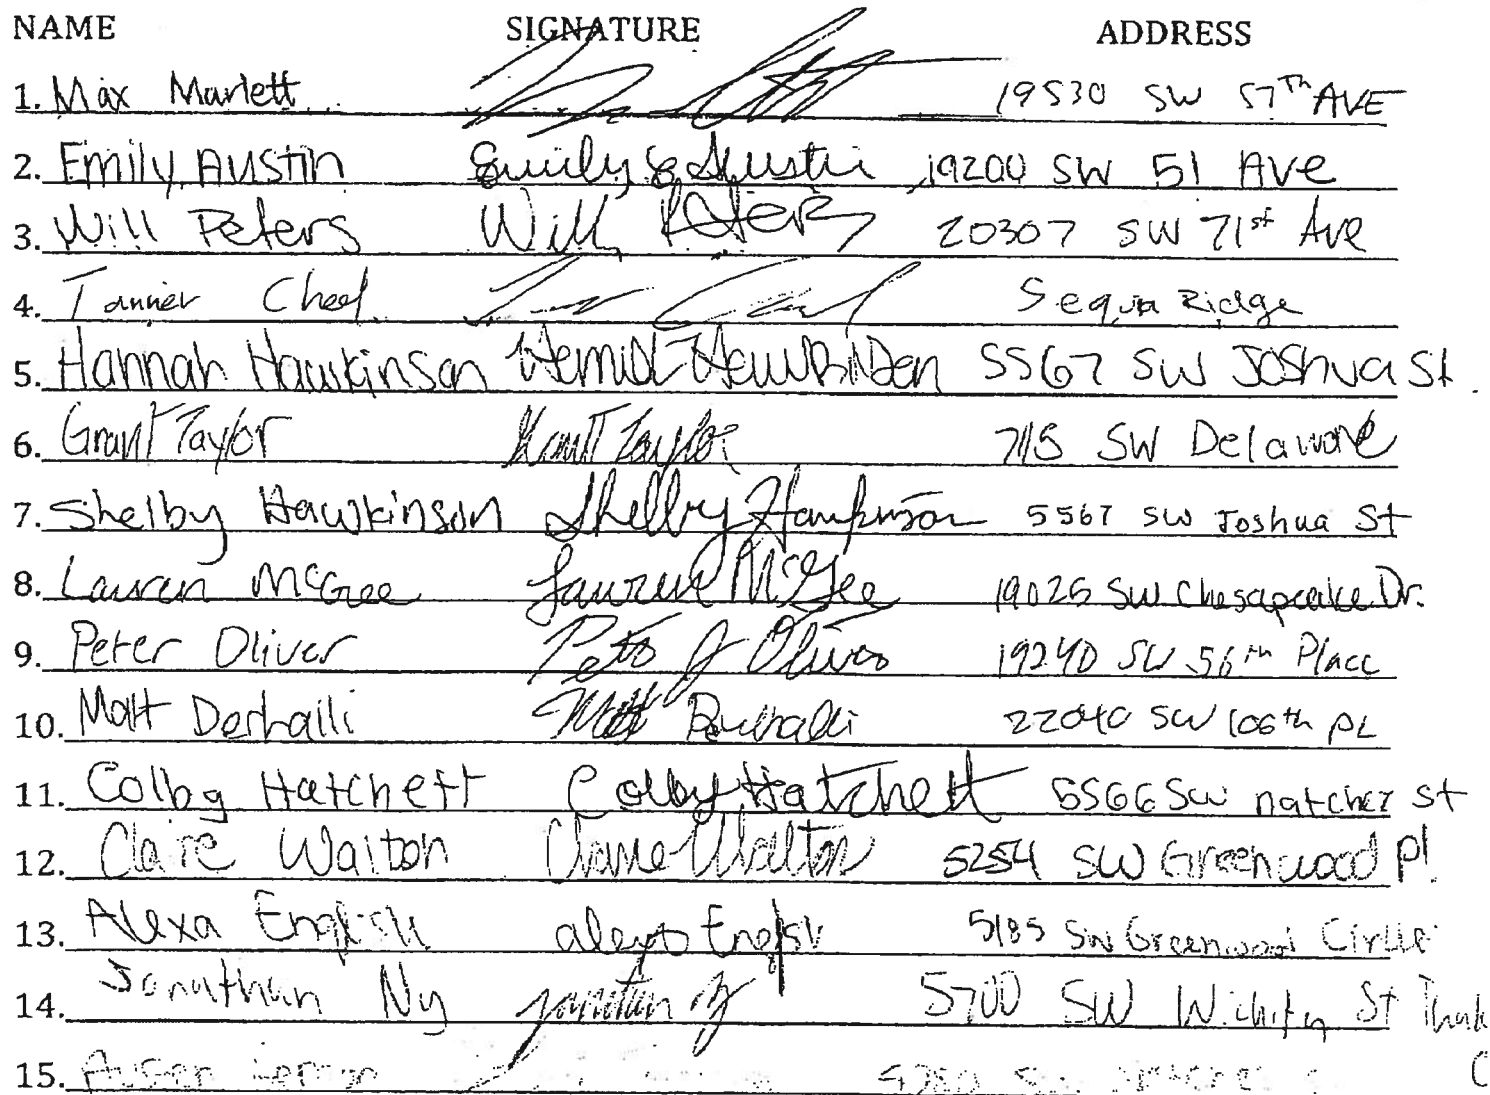 NAME SIGNATURE ADDRESS
1. Max Marlett 19530 SW 57th AVE
2. Emily Austin Emily E Austin 19200 SW 51 Ave
3. Will Peters Will Peters 20307 SW 71st Ave
4. Tanner Cheel Sequia Ridge
5. Hannah Hawkinson Hannah Hawkinson 5567 SW Joshua St.
6. Grant Taylor Grant Taylor 7115 SW Delaware
7. Shelby Hawkinson Shelby Hawkinson 5567 SW Joshua St
8. Lauren McGee Lauren McGee 19025 SW Chesapeake Dr.
9. Peter Oliver Peter J Oliver 19240 SW 56th Place
10. Matt Derhalli Matt Derhalli 22040 SW 106th PL
11. Colby Hatchett Colby Hatchett SW natchez st
12. Claire Walton Claire Walton 5254 SW Greenwood Pl.
13. Alexa English alexa English 5185 SW Greenwood Circle
14. Jonathan Ny 5700 SW Wichita St
15.